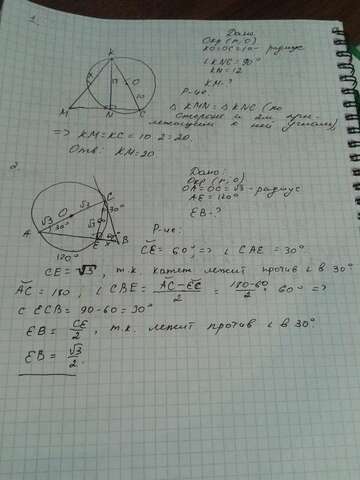 1.
Дано:
Окр (r, O)
KO=OC=10 - радиус
∠KNC = 90°
KN=12
KM-?
Р-ие:
△KMN = △KNC (по
стороне и 2м при-
лежащим к ней углам)
=> KM=KC = 10·2=20.
Отв: KM=20.
K
O
10
M
N
C
2.
Дано:
Окр (r, O)
OA=OC=√3 - радиус
AE = 120°
EB-?
Р-ие:
CE = 60°, => ∠CAE = 30°.
CE = √3, т.к. катет лежит против ∠ в 30°
AC = 180, ∠CBE = AC-EC/2 = 180-60/2 = 60° =>
∠ECB = 90-60=30°
EB = CE/2, т.к. лежит против ∠ в 30°
EB = √3/2.
C
O
√3
√3
30°
30°
√3
A
E
60°
B
120°